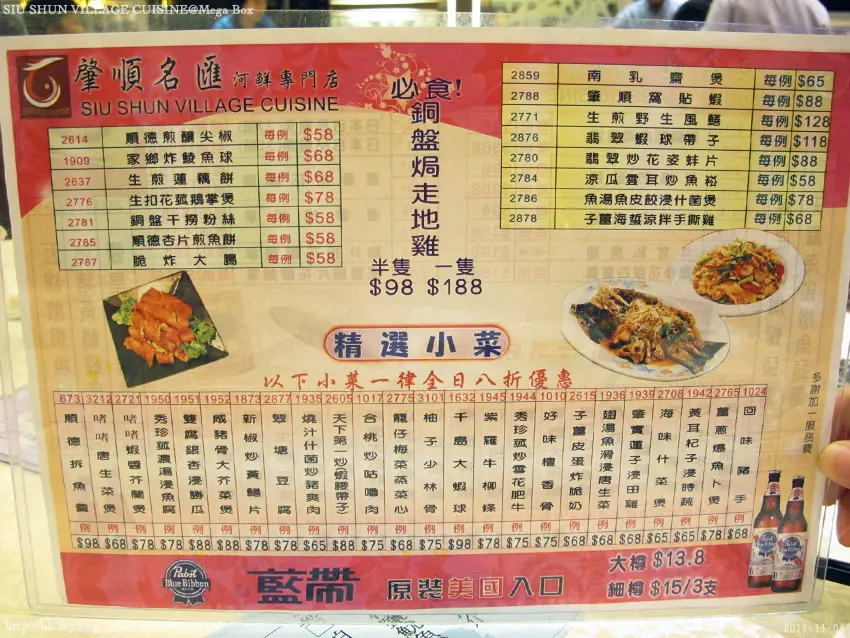 SIU SHUN VILLAGE CUISINE@Mega Box
肇順名匯 河鮮專門店
SIU SHUN VILLAGE CUISINE
2614 順德煎釀尖椒 每例 $58
1909 家鄉炸鯪魚球 每例 $68
2637 生煎蓮藕餅 每例 $68
2776 生扣花菰鵝掌煲 每例 $78
2781 銅盤干撈粉絲 每例 $58
2785 順德杏片煎魚餅 每例 $58
2787 脆炸大腸 每例 $58
必食!
銅盤焗走地雞
半隻 一隻
$98 $188
2859 南乳齋煲 每例 $65
2788 肇順窩貼蝦 每例 $88
2771 生煎野生風鱔 每例 $128
2876 翡翠蝦球帶子 每例 $118
2780 翡翠炒花姿蚌片 每例 $88
2784 涼瓜雲耳炒魚崧 每例 $58
2786 魚湯魚皮餃浸什菌煲 每例 $78
2878 子薑海蜇涼拌手撕雞 每例 $68
精選小菜
以下小菜一律全日八折優惠
673 順德拆魚羹 例 $98
3212 啫啫唐生菜煲 例 $68
2721 啫啫蝦醬芥蘭煲 例 $78
1950 秀珍菰濃湯浸魚腐 例 $78
1951 雙腐銀杏浸勝瓜 例 $88
1952 咸豬骨大芥菜煲 例 $78
1873 新椒炒黃鱔片 例 $88
2877 翠塘豆腐 例 $78
1935 燒汁什菌炒豬爽肉 例 $65
2605 天下第一炒(蝦腰帶子) 例 $88
1017 合桃炒咕嚕肉 例 $75
2775 籠仔梅菜蒸菜心 例 $68
3101 柚子少林骨 例 $75
1632 千島大蝦球 例 $98
1945 紫蘿牛柳條 例 $78
1944 秀珍菰炒雪花肥牛 例 $75
1010 好味檀香骨 例 $75
2615 子薑皮蛋炸脆奶 例 $68
1936 翅湯魚滑浸唐生菜 例 $68
1939 肇實蓮子浸田雞 例 $68
2708 海味什菜煲 例 $65
1942 黃耳杞子浸時蔬 例 $65
2765 薑蔥爆魚卜煲 例 $78
1024 回味豬手 例 $68
多謝加一服務費
Pabst
Blue Ribbon
藍帶 原裝美國入口
大樽 $13.8
細樽 $15/3支
2011-11-04